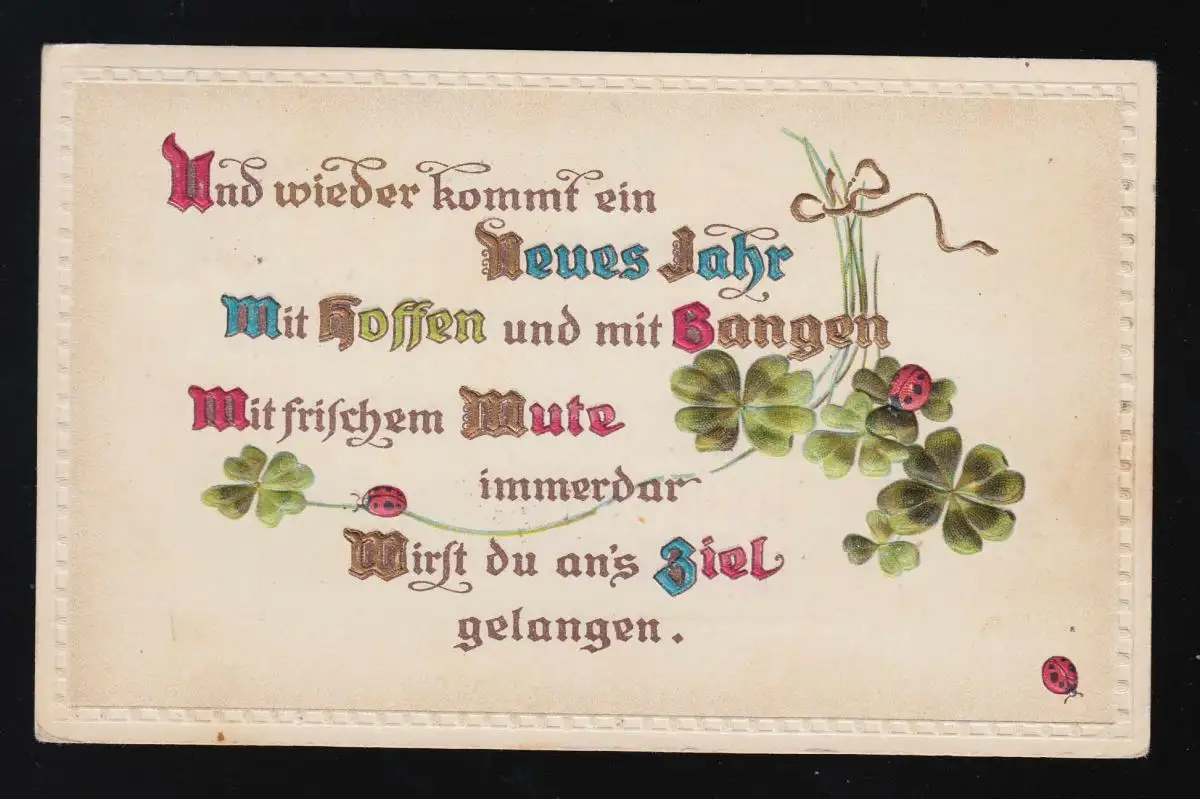 Und wieder kommt ein
Neues Jahr
Mit Hoffen und mit Bangen
Mit frischem Mute
immerdar
Wirst du an's Ziel
gelangen.